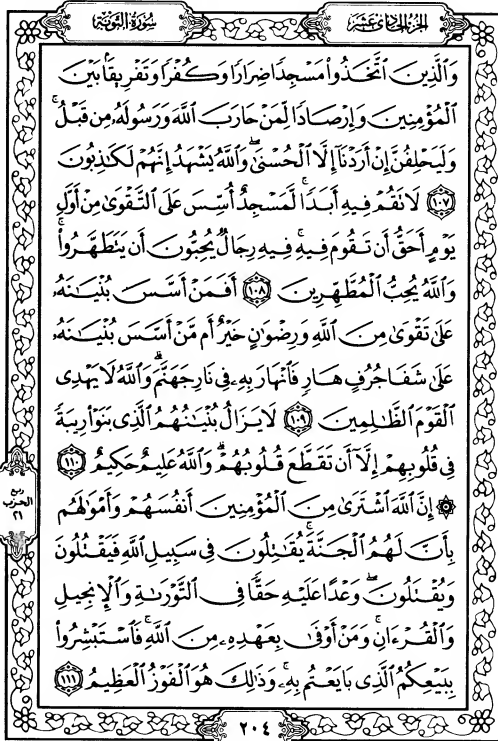 الجزء الحادى عشر
سورة التوبة
وَٱلَّذِينَ ٱتَّخَذُوا۟ مَسْجِدًا ضِرَارًا وَكُفْرًا وَتَفْرِيقًۢا بَيْنَ
ٱلْمُؤْمِنِينَ وَإِرْصَادًا لِّمَنْ حَارَبَ ٱللَّهَ وَرَسُولَهُۥ مِن قَبْلُ ۚ
وَلَيَحْلِفُنَّ إِنْ أَرَدْنَآ إِلَّا ٱلْحُسْنَىٰ ۖ وَٱللَّهُ يَشْهَدُ إِنَّهُمْ لَكَـٰذِبُونَ
١٠٧ لَا تَقُمْ فِيهِ أَبَدًا ۚ لَّمَسْجِدٌ أُسِّسَ عَلَى ٱلتَّقْوَىٰ مِنْ أَوَّلِ
يَوْمٍ أَحَقُّ أَن تَقُومَ فِيهِ ۚ فِيهِ رِجَالٌ يُحِبُّونَ أَن يَتَطَهَّرُوا۟ ۚ
وَٱللَّهُ يُحِبُّ ٱلْمُطَّهِّرِينَ ١٠٨ أَفَمَنْ أَسَّسَ بُنْيَـٰنَهُۥ
عَلَىٰ تَقْوَىٰ مِنَ ٱللَّهِ وَرِضْوَٰنٍ خَيْرٌ أَم مَّنْ أَسَّسَ بُنْيَـٰنَهُۥ
عَلَىٰ شَفَا جُرُفٍ هَارٍ فَٱنْهَارَ بِهِۦ فِى نَارِ جَهَنَّمَ ۗ وَٱللَّهُ لَا يَهْدِى
ٱلْقَوْمَ ٱلظَّـٰلِمِينَ ١٠٩ لَا يَزَالُ بُنْيَـٰنُهُمُ ٱلَّذِى بَنَوْا۟ رِيبَةً
فِى قُلُوبِهِمْ إِلَّآ أَن تَقَطَّعَ قُلُوبُهُمْ ۗ وَٱللَّهُ عَلِيمٌ حَكِيمٌ ١١٠
۞ إِنَّ ٱللَّهَ ٱشْتَرَىٰ مِنَ ٱلْمُؤْمِنِينَ أَنفُسَهُمْ وَأَمْوَٰلَهُم
بِأَنَّ لَهُمُ ٱلْجَنَّةَ ۚ يُقَـٰتِلُونَ فِى سَبِيلِ ٱللَّهِ فَيَقْتُلُونَ
وَيُقْتَلُونَ ۖ وَعْدًا عَلَيْهِ حَقًّا فِى ٱلتَّوْرَىٰةِ وَٱلْإِنجِيلِ
وَٱلْقُرْءَانِ ۚ وَمَنْ أَوْفَىٰ بِعَهْدِهِۦ مِنَ ٱللَّهِ ۚ فَٱسْتَبْشِرُوا۟
بِبَيْعِكُمُ ٱلَّذِى بَايَعْتُم بِهِۦ ۚ وَذَٰلِكَ هُوَ ٱلْفَوْزُ ٱلْعَظِيمُ ١١١
ربع
الحزب
٢١
٢٠٤